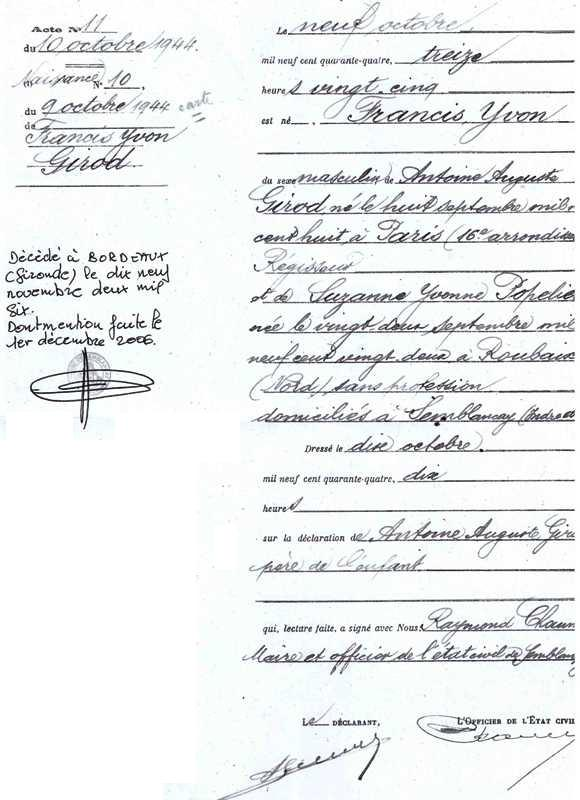 Acte N° 11
du 10 octobre 1944.
Naissance N° 10
du 9 octobre 1944 carte
de
Francis Yvon
Girod
Décédé à BORDEAUX
(Gironde) le dix neuf
novembre deux mil
six.
Dont mention faite le
1er décembre 2006.
Le neuf octobre
mil neuf cent quarante-quatre, treize
heures vingt cinq
est né, Francis Yvon
du sexe masculin de Antoine Auguste
Girod né le huit septembre mil
cent huit à Paris (16e arrondisse
Régisseur
et de Suzanne Yvonne Popelie
née le vingt deux septembre mil
neuf cent vingt deux à Roubaix
(Nord) sans profession
domiciliés à Semblançay (Indre et
Dressé le dix octobre
mil neuf cent quarante-quatre, dix
heures
sur la déclaration de Antoine Auguste Giro
père de l'enfant
qui, lecture faite, a signé avec Nous, Raymond Chaum
Maire et officier de l'état civil de Semblanç
Le DÉCLARANT, L'OFFICIER DE L'ÉTAT CIVIL